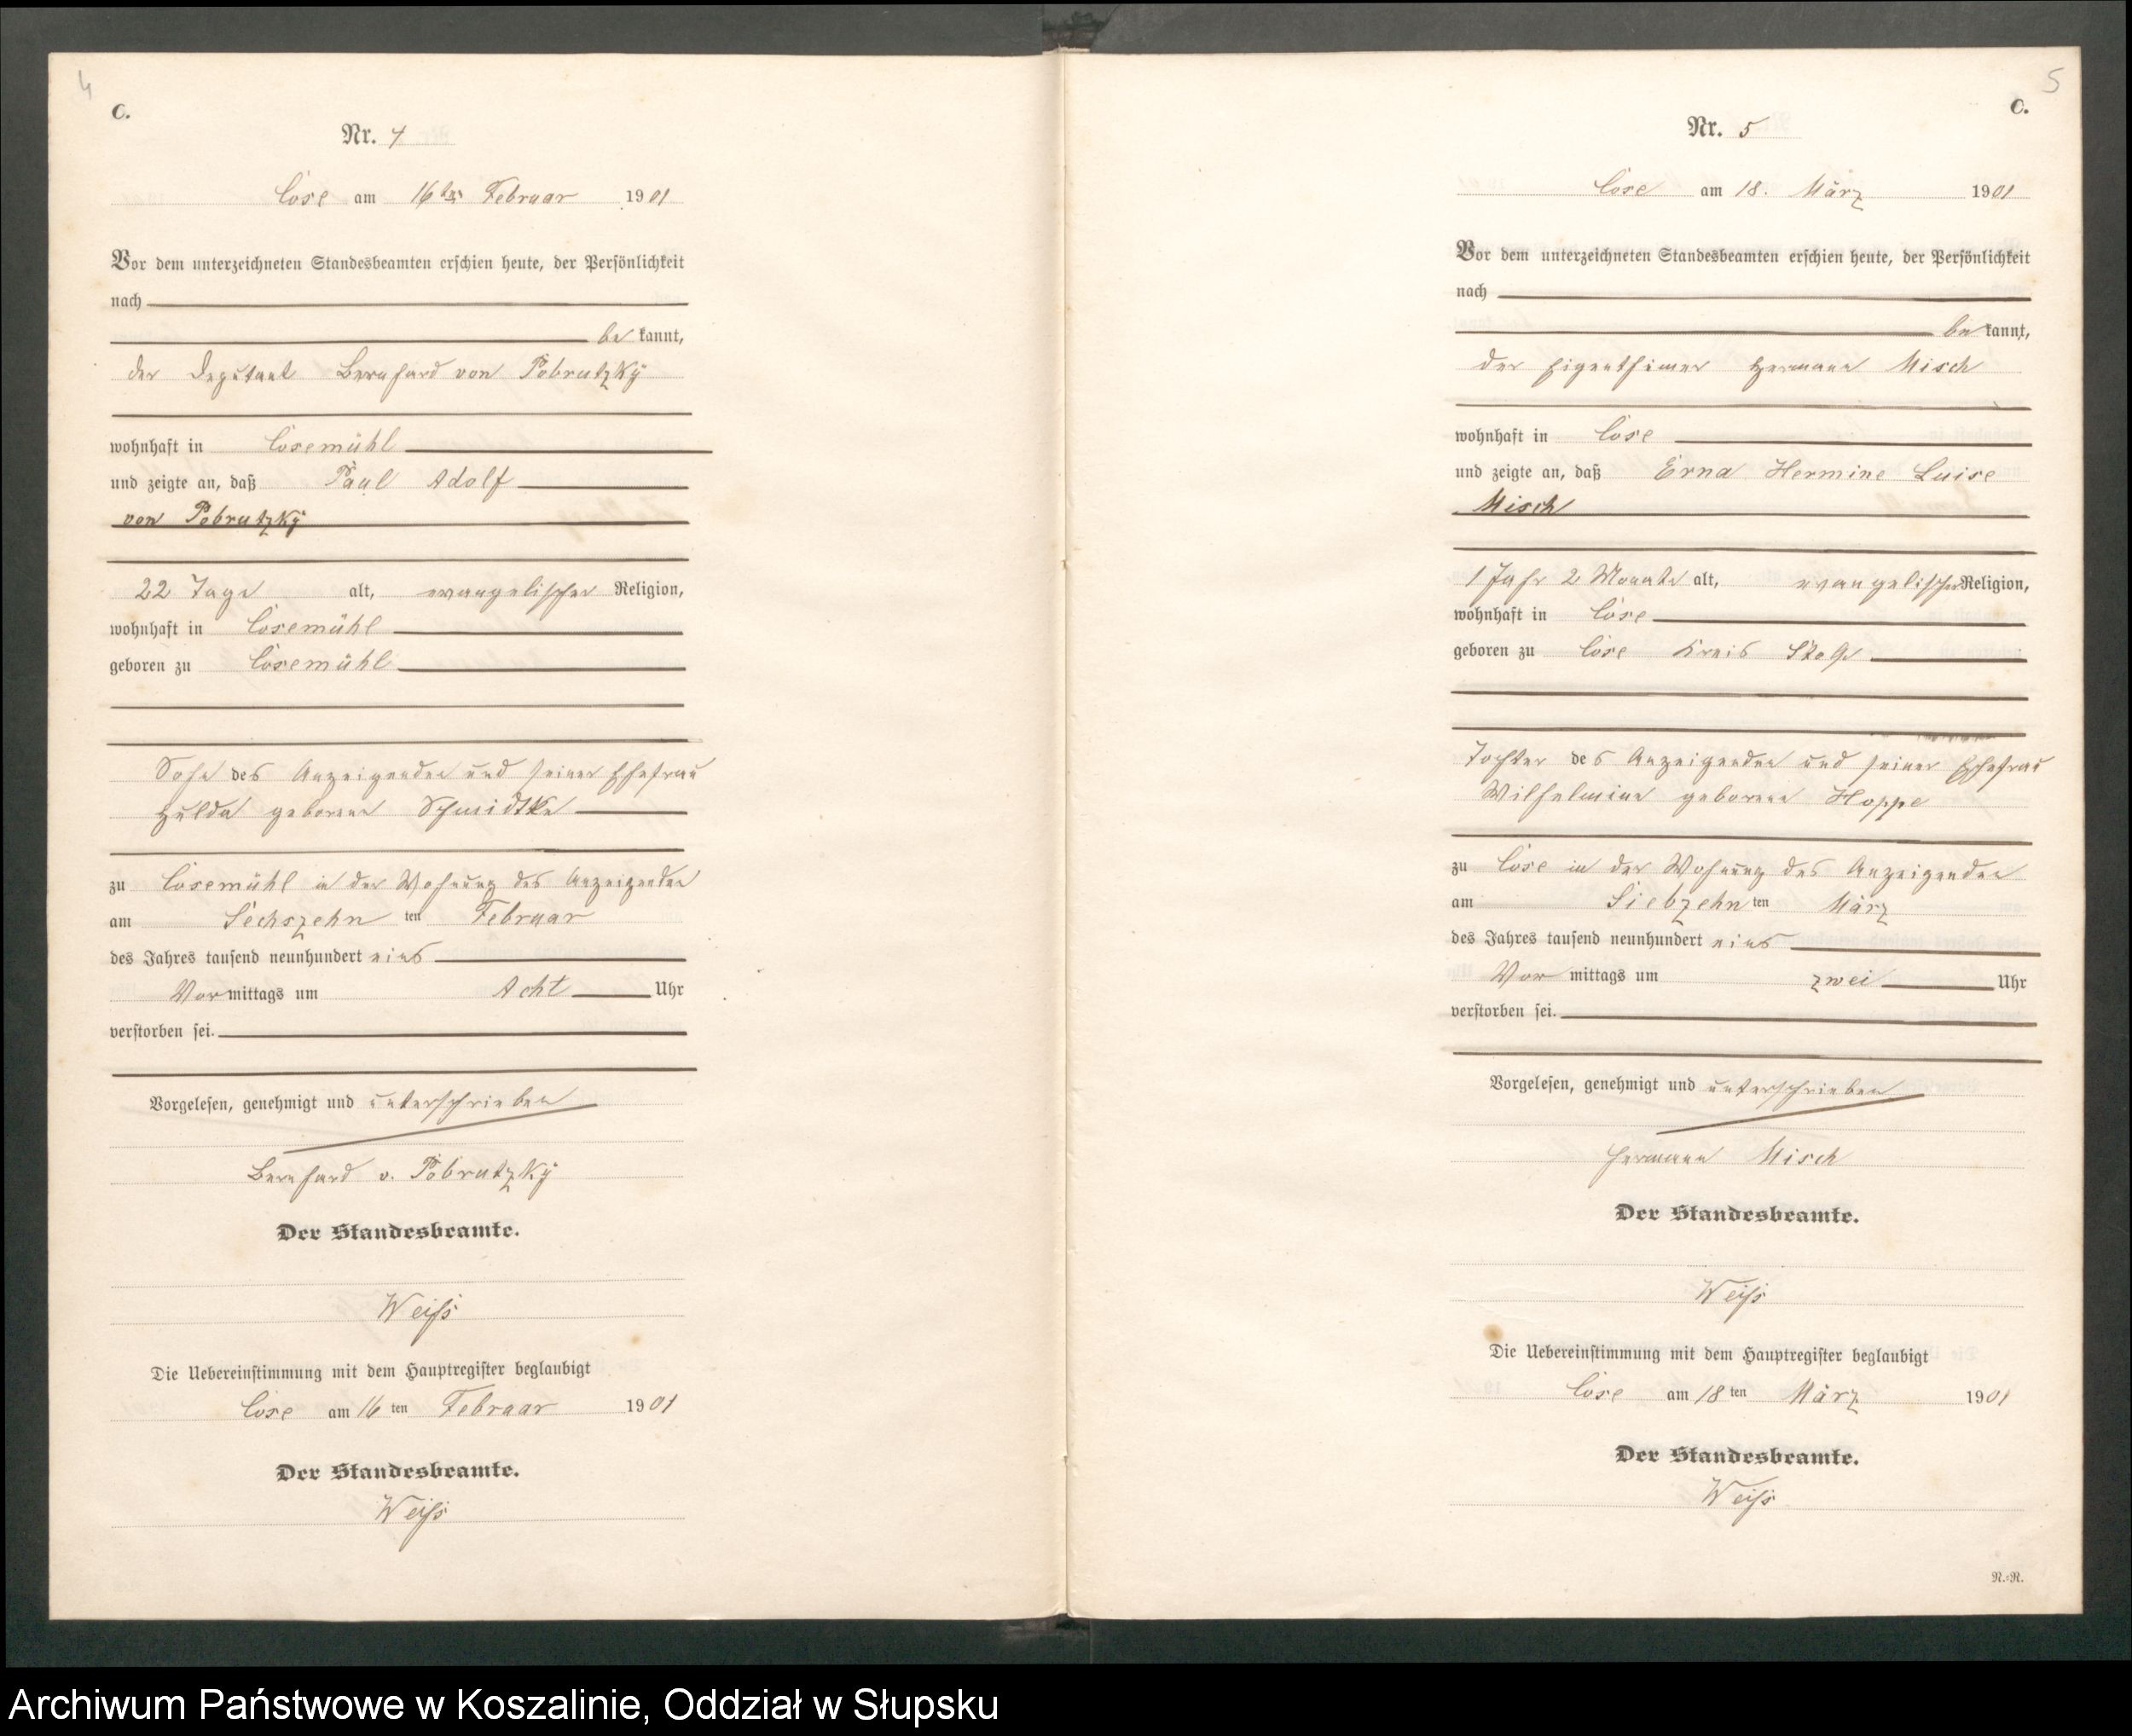 4
C.
Nr. 4
Lose am 16ten Februar 1901
Vor dem unterzeichneten Standesbeamten erschien heute, der Persönlichkeit
nach
be kannt,
der Deputant Bernhard von Pobrutzky
wohnhaft in Losemühl
und zeigte an, daß Paul Adolf
von Pobrutzky
22 Tage alt, evangelischer Religion,
wohnhaft in Losemühl
geboren zu Losemühl
Sohn des Anzeigenden und seiner Ehefrau
Hulda geborene Schmidtke
zu Losemühl in der Wohnung des Anzeigenden
am Sechszehn ten Februar
des Jahres tausend neunhundert eins
Vor mittags um Acht Uhr
verstorben sei.
Vorgelesen, genehmigt und unterschrieben
Bernhard v. Pobrutzky
Der Standesbeamte.
Weiß
Die Uebereinstimmung mit dem Hauptregister beglaubigt
Lose am 16 ten Februar 1901
Der Standesbeamte.
Weiß
5
C.
Nr. 5
Lose am 18. März 1901
Vor dem unterzeichneten Standesbeamten erschien heute, der Persönlichkeit
nach
be kannt,
der Eigenthümer Hermann Misch
wohnhaft in Lose
und zeigte an, daß Erna Hermine Luise
Misch
1 Jahr 2 Monate alt, evangelischer Religion,
wohnhaft in Lose
geboren zu Lose Kreis Stolp
Tochter des Anzeigenden und seiner Ehefrau
Wilhelmine geborene Hoppe
zu Lose in der Wohnung des Anzeigenden
am Siebzehn ten März
des Jahres tausend neunhundert eins
Vor mittags um zwei Uhr
verstorben sei.
Vorgelesen, genehmigt und unterschrieben
Hermann Misch
Der Standesbeamte.
Weiß
Die Uebereinstimmung mit dem Hauptregister beglaubigt
Lose am 18 ten März 1901
Der Standesbeamte.
Weiß
N.-R.
Archiwum Państwowe w Koszalinie, Oddział w Słupsku